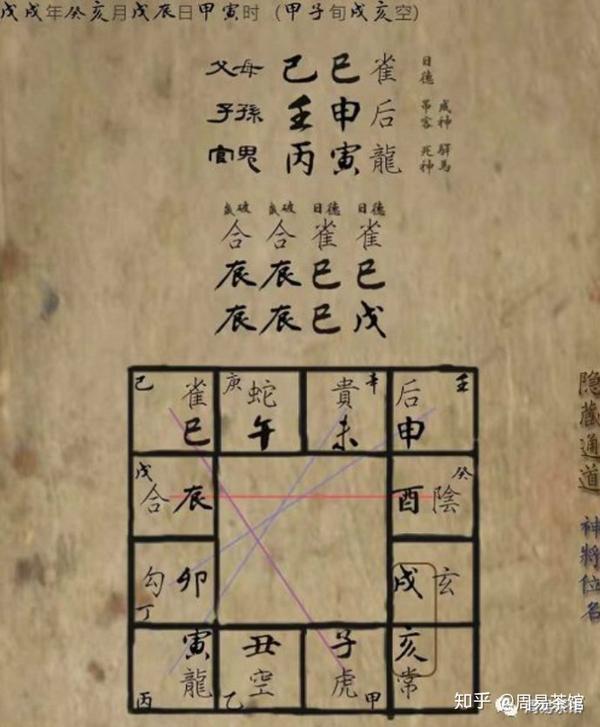 戊戌年癸亥月戊辰日甲寅时（甲子旬戌亥空）
父母 己 巳 雀 日德
子孫 壬 申 后 吊客 成神
官鬼 丙 寅 龍 死神 驛馬
歲破 歲破 日德 日德
合 合 雀 雀
辰 辰 巳 巳
辰 辰 巳 戊
己 雀 庚 蛇 貴 辛 后 壬
巳 午 未 申
戊 合 辰 酉 陰 癸
勾 卯 戌 玄
丁
寅 丑 子 亥
龍 空 虎 常
丙 乙 甲
隐藏通道
神將位名
知乎 @周易茶馆